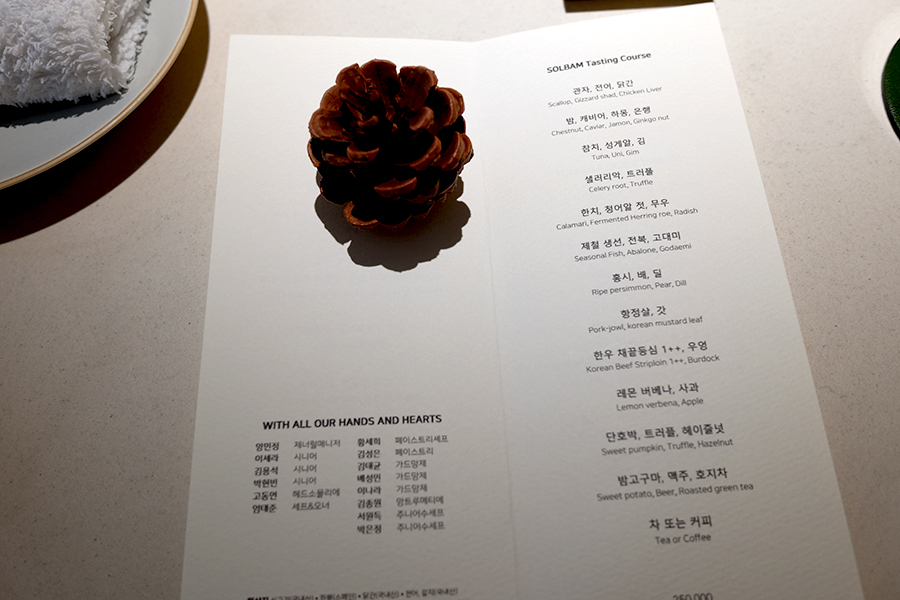 WITH ALL OUR HANDS AND HEARTS
양민정 제너럴매니저 황세희 페이스트리셰프
이세라 시니어 김성은 페이스트리
김용석 시니어 김태균 가드망제
박현빈 시니어 배성민 가드망제
고동연 헤드소믈리에 이나라 가드망제
엄태준 셰프&오너 김종원 앙트루메티에
서원득 주니어수셰프
박은정 주니어수셰프
SOLBAM Tasting Course
관자, 전어, 닭간
Scallop, Gizzard shad, Chicken Liver
밤, 캐비어, 하몽, 은행
Chestnut, Caviar, Jamon, Ginkgo nut
참치, 성게알, 김
Tuna, Uni, Gim
샐러리악, 트러플
Celery root, Truffle
한치, 청어알 젓, 무우
Calamari, Fermented Herring roe, Radish
제철 생선, 전복, 고대미
Seasonal Fish, Abalone, Godaemi
홍시, 배, 딜
Ripe persimmon, Pear, Dill
항정살, 갓
Pork-jowl, korean mustard leaf
한우 채끝등심 1++, 우엉
Korean Beef Striploin 1++, Burdock
레몬 버베나, 사과
Lemon verbena, Apple
단호박, 트러플, 헤이즐넛
Sweet pumpkin, Truffle, Hazelnut
밤고구마, 맥주, 호지차
Sweet potato, Beer, Roasted green tea
차 또는 커피
Tea or Coffee
250,000